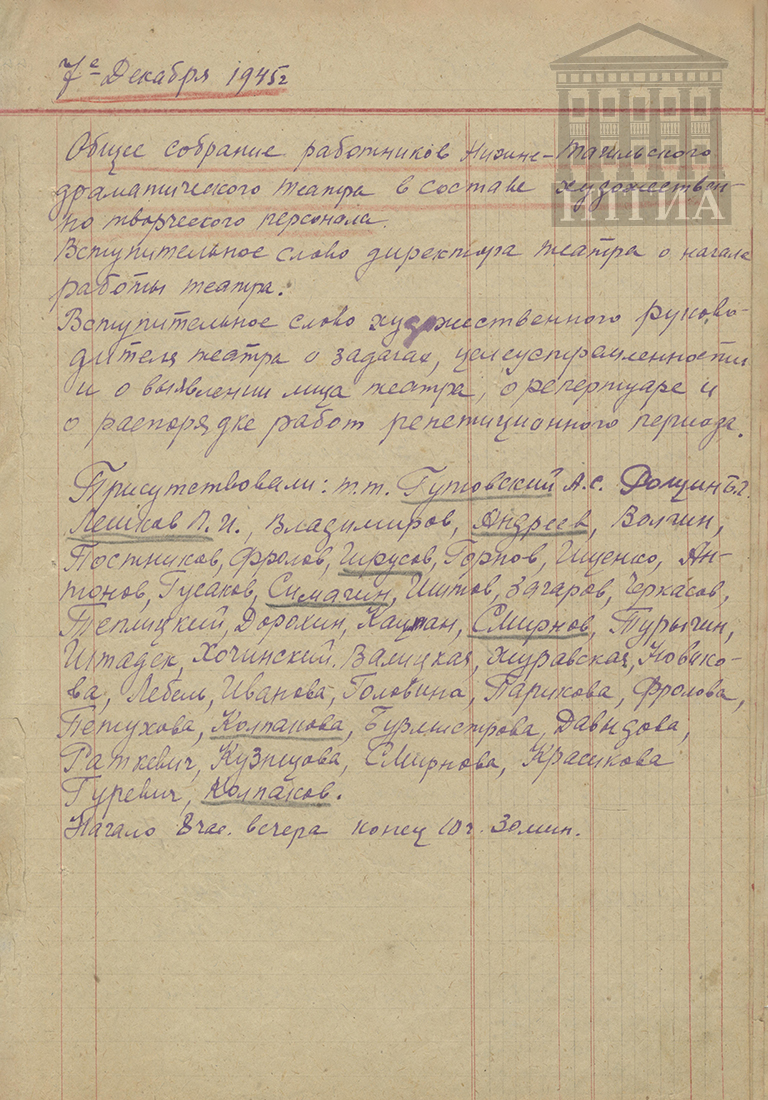 7е Декабря 1945г
Общее собрание работников Нижне-Тагильского
драматического театра в составе художествен-
но творческого персонала.
Вступительное слово директора театра о начале
работы театра.
Вступительное слово художественного руково-
дителя театра о задачах, целеустремленности
и о выявлении лица театра, о репертуаре и
о распорядке работ репетиционного периода.
Присутствовали: т.т. Гутовский А.С. Дощин
Лешков П.И., Владимиров, Андреев, Волгин,
Постников, Фролов, Горпов, Ищенко, Ан-
тонов, Гусаков, Симагин, Шитов, Захаров, Черкасов,
Теплицкий, Дорохин, Смирнов, Турычин,
Штадек, Хочинский, Валицкая, Журавская, Новико-
ва, Лебель, Иванова, Головина, Парикова, Фролова,
Петухова, Колпакова, Давыдова,
Раткевич, Кузнецова, Смирнова, Красикова
Гуревич, Колпаков.
Начало 8 час. вечера конец 10 ч. 30 мин.
НТГИА